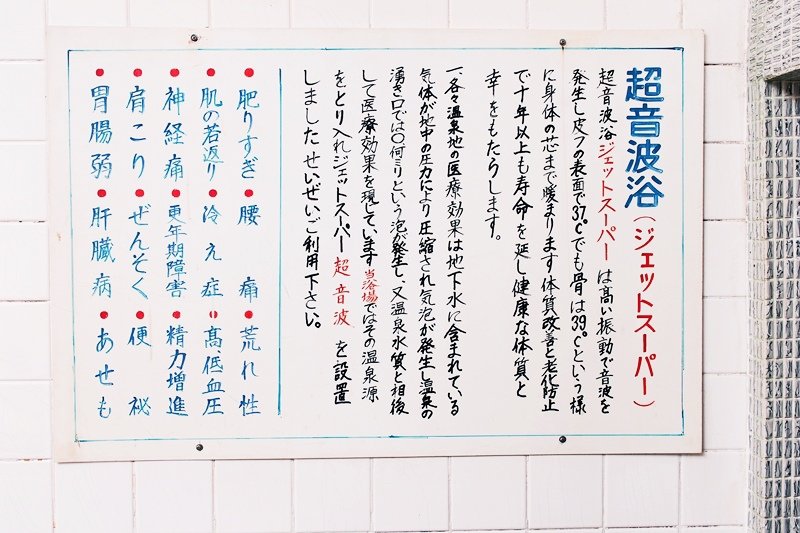 超音波浴(ジェットスーパー)
超音波浴ジェットスーパーは高い振動で音波を
発生し皮フの表面で37℃でも骨は39℃という様
に身体の芯まで暖まります体質改善と老化防止
で十年以上も寿命を延し健康な体質と
幸をもたらします。
一、各々温泉地の医療効果は地下水に含まれている
気体が地中の圧力により圧縮され気泡が発生し温泉の
湧き口では〇何ミリという泡が発生し、又温泉水質と相後
して医療効果を現しています当浴場ではその温泉源
をとり入れジェットスーパー超音波を設置
しましたせいぜいご利用下さい。
●肥りすぎ●腰痛●荒れ性
●肌の若返り●冷え症●高、低血圧
●神経痛●更年期障害●精力増進
●肩こり●ぜんそく●便秘
●胃腸弱●肝臓病●あせも